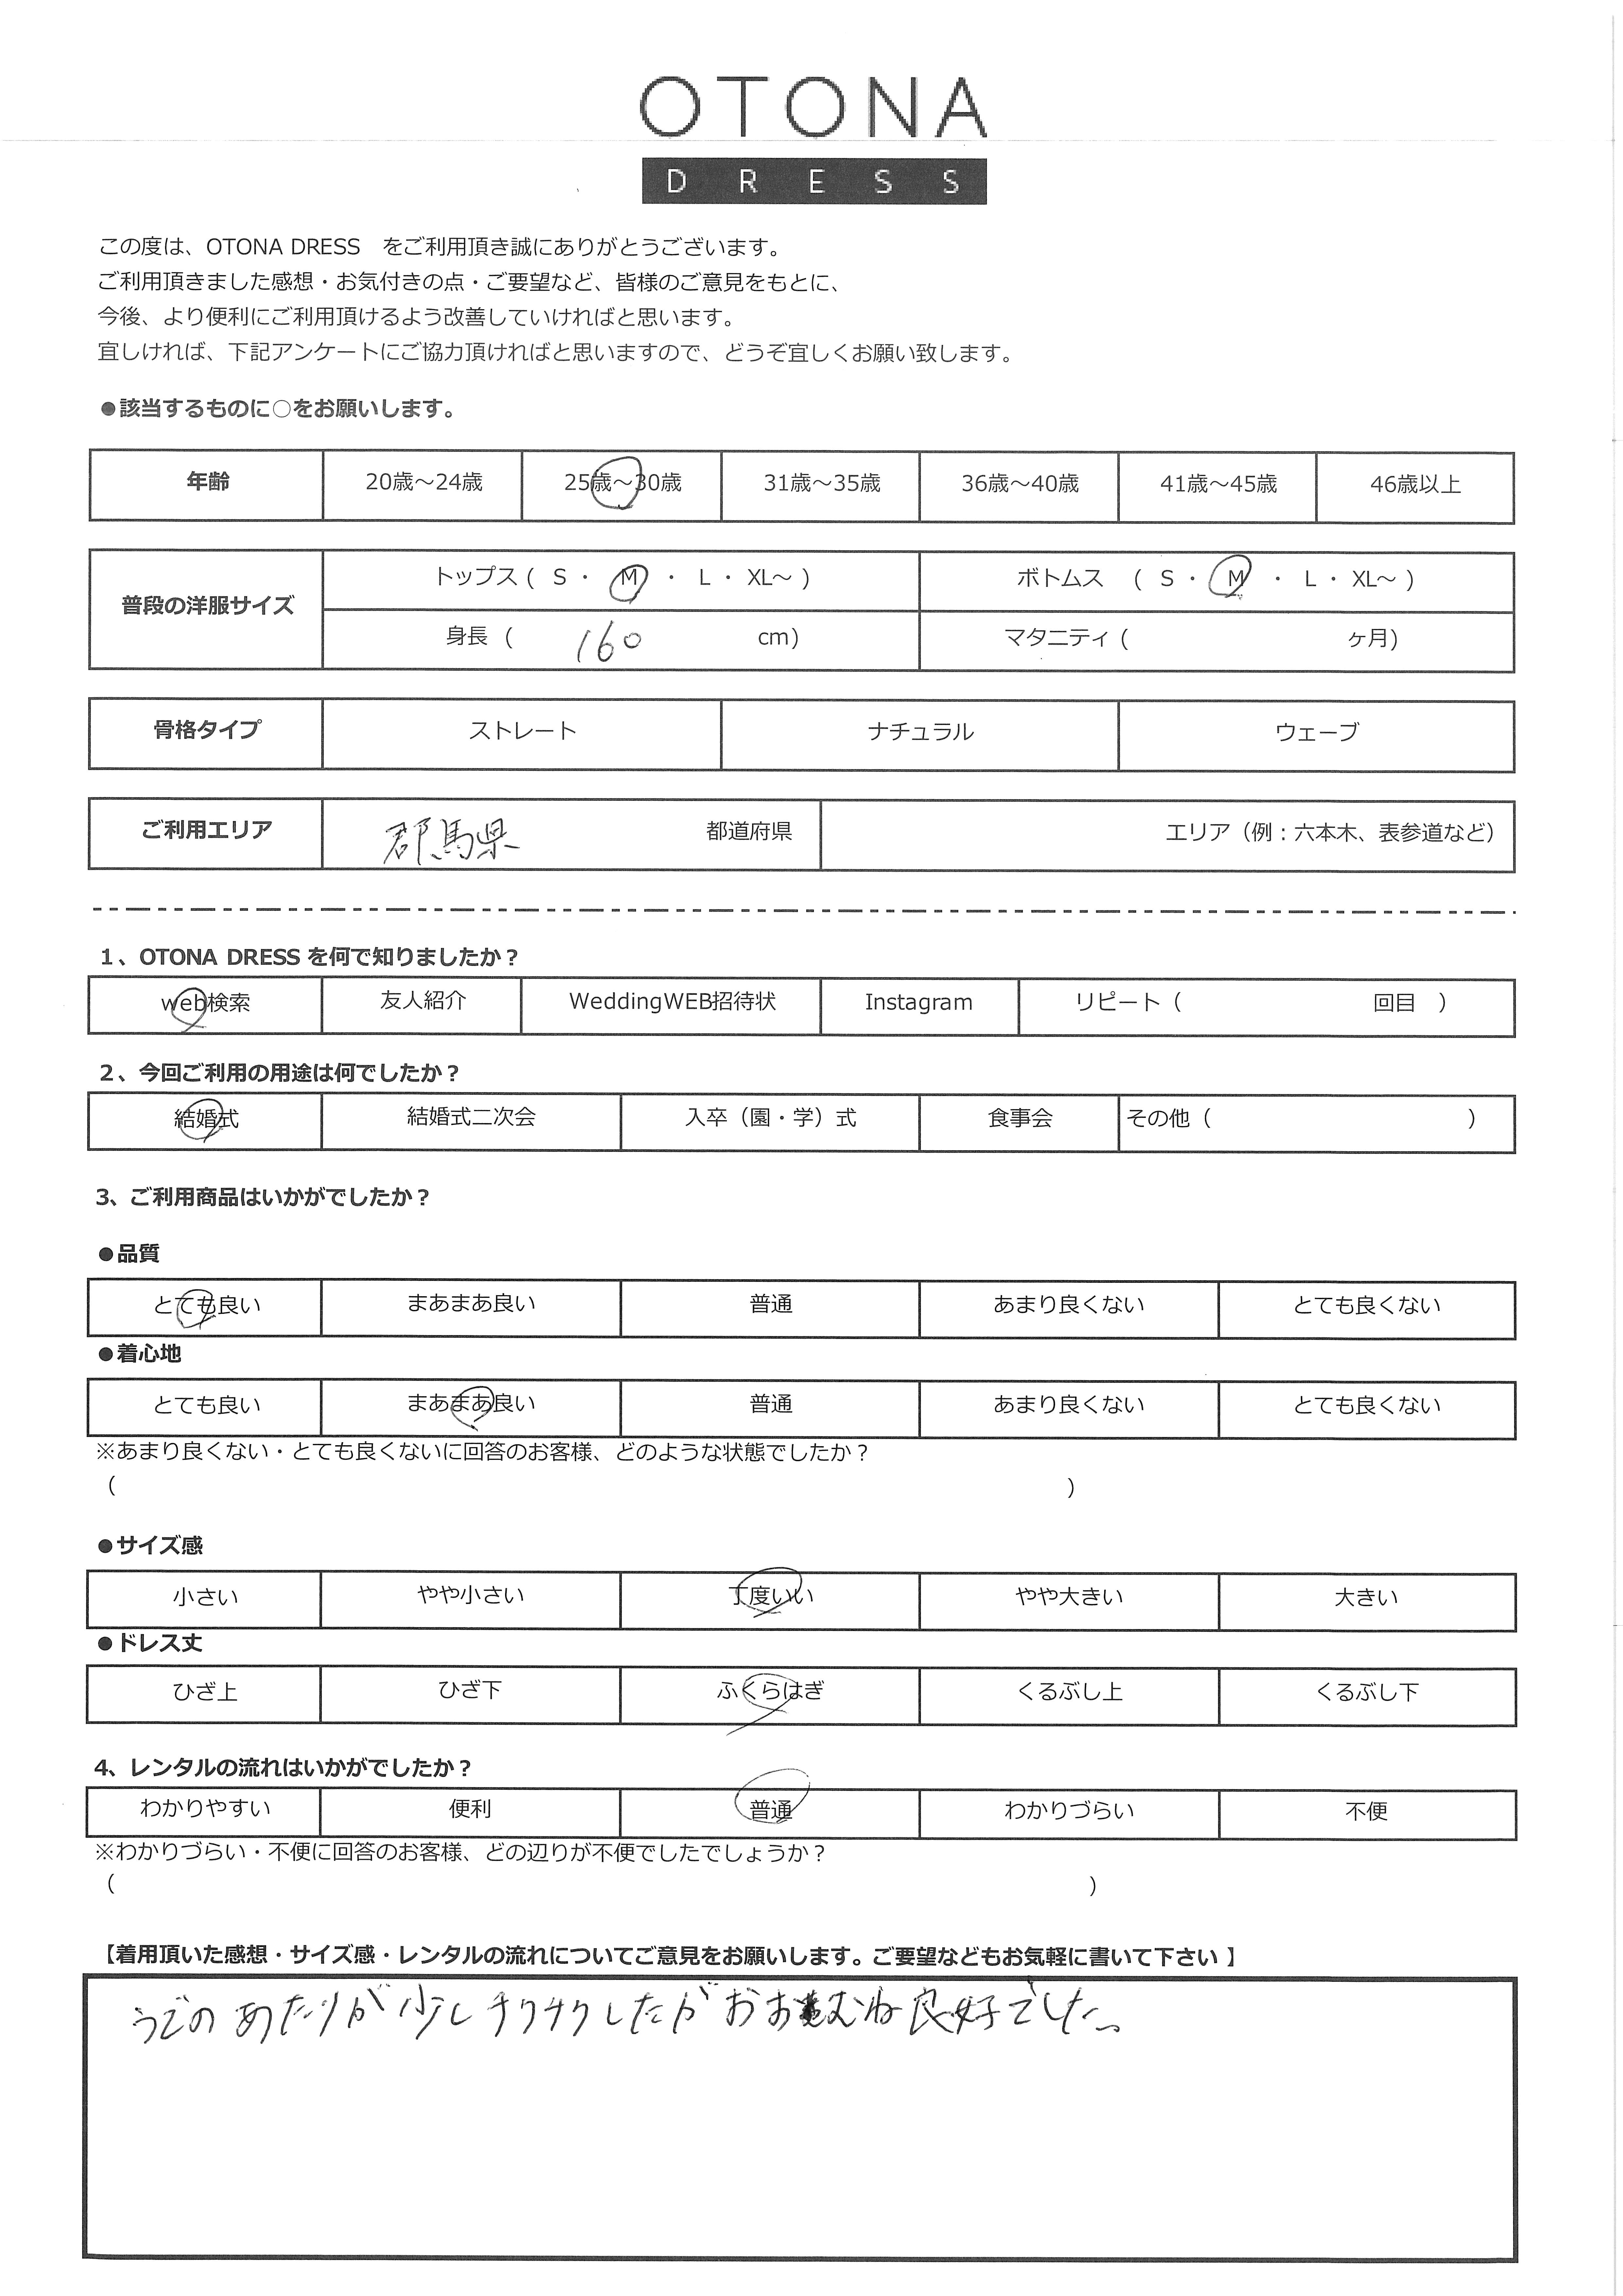 OTONA
DRESS
この度は、OTONA DRESS　をご利用頂き誠にありがとうございます。
ご利用頂きました感想・お気付きの点・ご要望など、皆様のご意見をもとに、
今後、より便利にご利用頂けるよう改善していければと思います。
宜しければ、下記アンケートにご協力頂ければと思いますので、どうぞ宜しくお願い致します。
●該当するものに○をお願いします。
年齢 20歳～24歳 25歳～30歳 31歳～35歳 36歳～40歳 41歳～45歳 46歳以上
普段の洋服サイズ
トップス ( S ・ M ・ L ・ XL～ ) ボトムス ( S ・ M ・ L ・ XL～ )
身長 ( 160 cm) マタニティ ( ヶ月)
骨格タイプ ストレート ナチュラル ウェーブ
ご利用エリア 郡馬県 都道府県 エリア（例：六本木、表参道など）
1、OTONA DRESS を何で知りましたか？
web検索 友人紹介 WeddingWEB招待状 Instagram リピート（ 回目 ）
2、今回ご利用の用途は何でしたか？
結婚式 結婚式二次会 入卒（園・学）式 食事会 その他（ ）
3、ご利用商品はいかがでしたか？
●品質
とても良い まあまあ良い 普通 あまり良くない とても良くない
●着心地
とても良い まあまあ良い 普通 あまり良くない とても良くない
※あまり良くない・とても良くないに回答のお客様、どのような状態でしたか？
（ ）
●サイズ感
小さい やや小さい 丁度いい やや大きい 大きい
●ドレス丈
ひざ上 ひざ下 ふくらはぎ くるぶし上 くるぶし下
4、レンタルの流れはいかがでしたか？
わかりやすい 便利 普通 わかりづらい 不便
※わかりづらい・不便に回答のお客様、どの辺りが不便でしたでしょうか？
（ ）
【着用頂いた感想・サイズ感・レンタルの流れについてご意見をお願いします。ご要望などもお気軽に書いて下さい 】
うでのあたりが少しチクチクしたがおおむね良好でした。